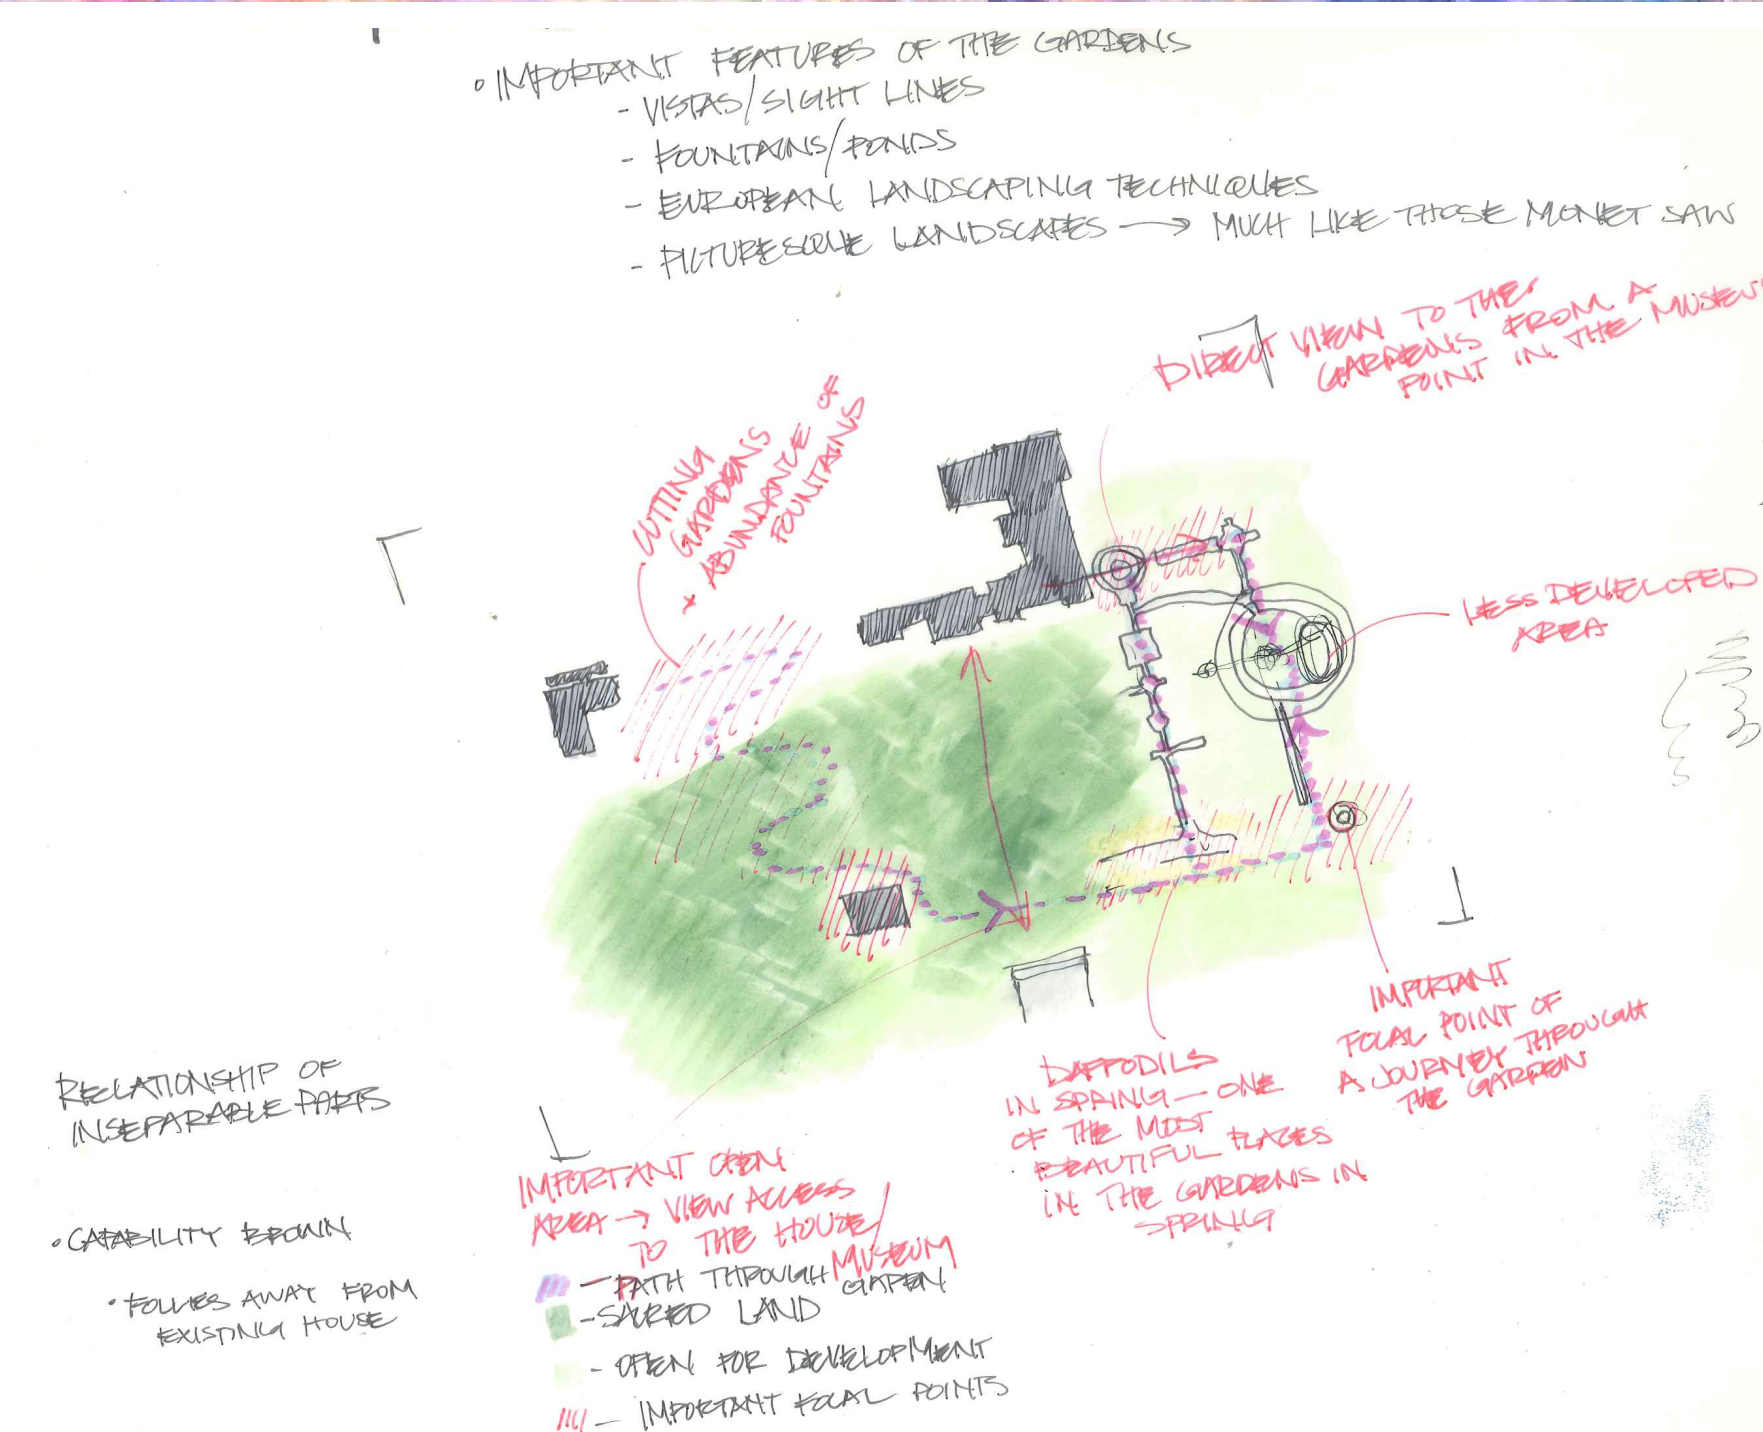 • IMPORTANT FEATURES OF THE GARDENS
- VISTAS/SIGHT LINES
- FOUNTAINS/PONDS
- EUROPEAN LANDSCAPING TECHNIQUES
- PICTURESQUE LANDSCAPES → MUCH LIKE THOSE MONET SAW
DIRECT VIEW TO THE
GARDENS FROM A
POINT IN THE MUSEUM
CUTTING
GARDENS
+ ABUNDANCE OF
FOUNTAINS
LESS DEVELOPED
AREA
IMPORTANT
FOCAL POINT OF
A JOURNEY THROUGH
THE GARDEN
DAFFODILS
IN SPRING — ONE
OF THE MOST
BEAUTIFUL PLACES
IN THE GARDENS IN
SPRING
RELATIONSHIP OF
INSEPARABLE PARTS
• CAPABILITY BROWN
• FOLLIES AWAY FROM
EXISTING HOUSE
IMPORTANT OPEN
AREA → VIEW ACCESS
TO THE HOUSE/
MUSEUM
- PATH THROUGH GARDEN
- SACRED LAND
- OPEN FOR DEVELOPMENT
- IMPORTANT FOCAL POINTS